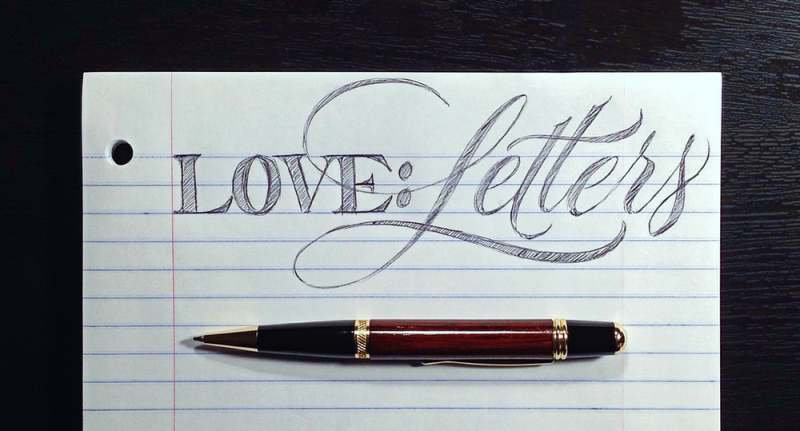 LOVE: Letters